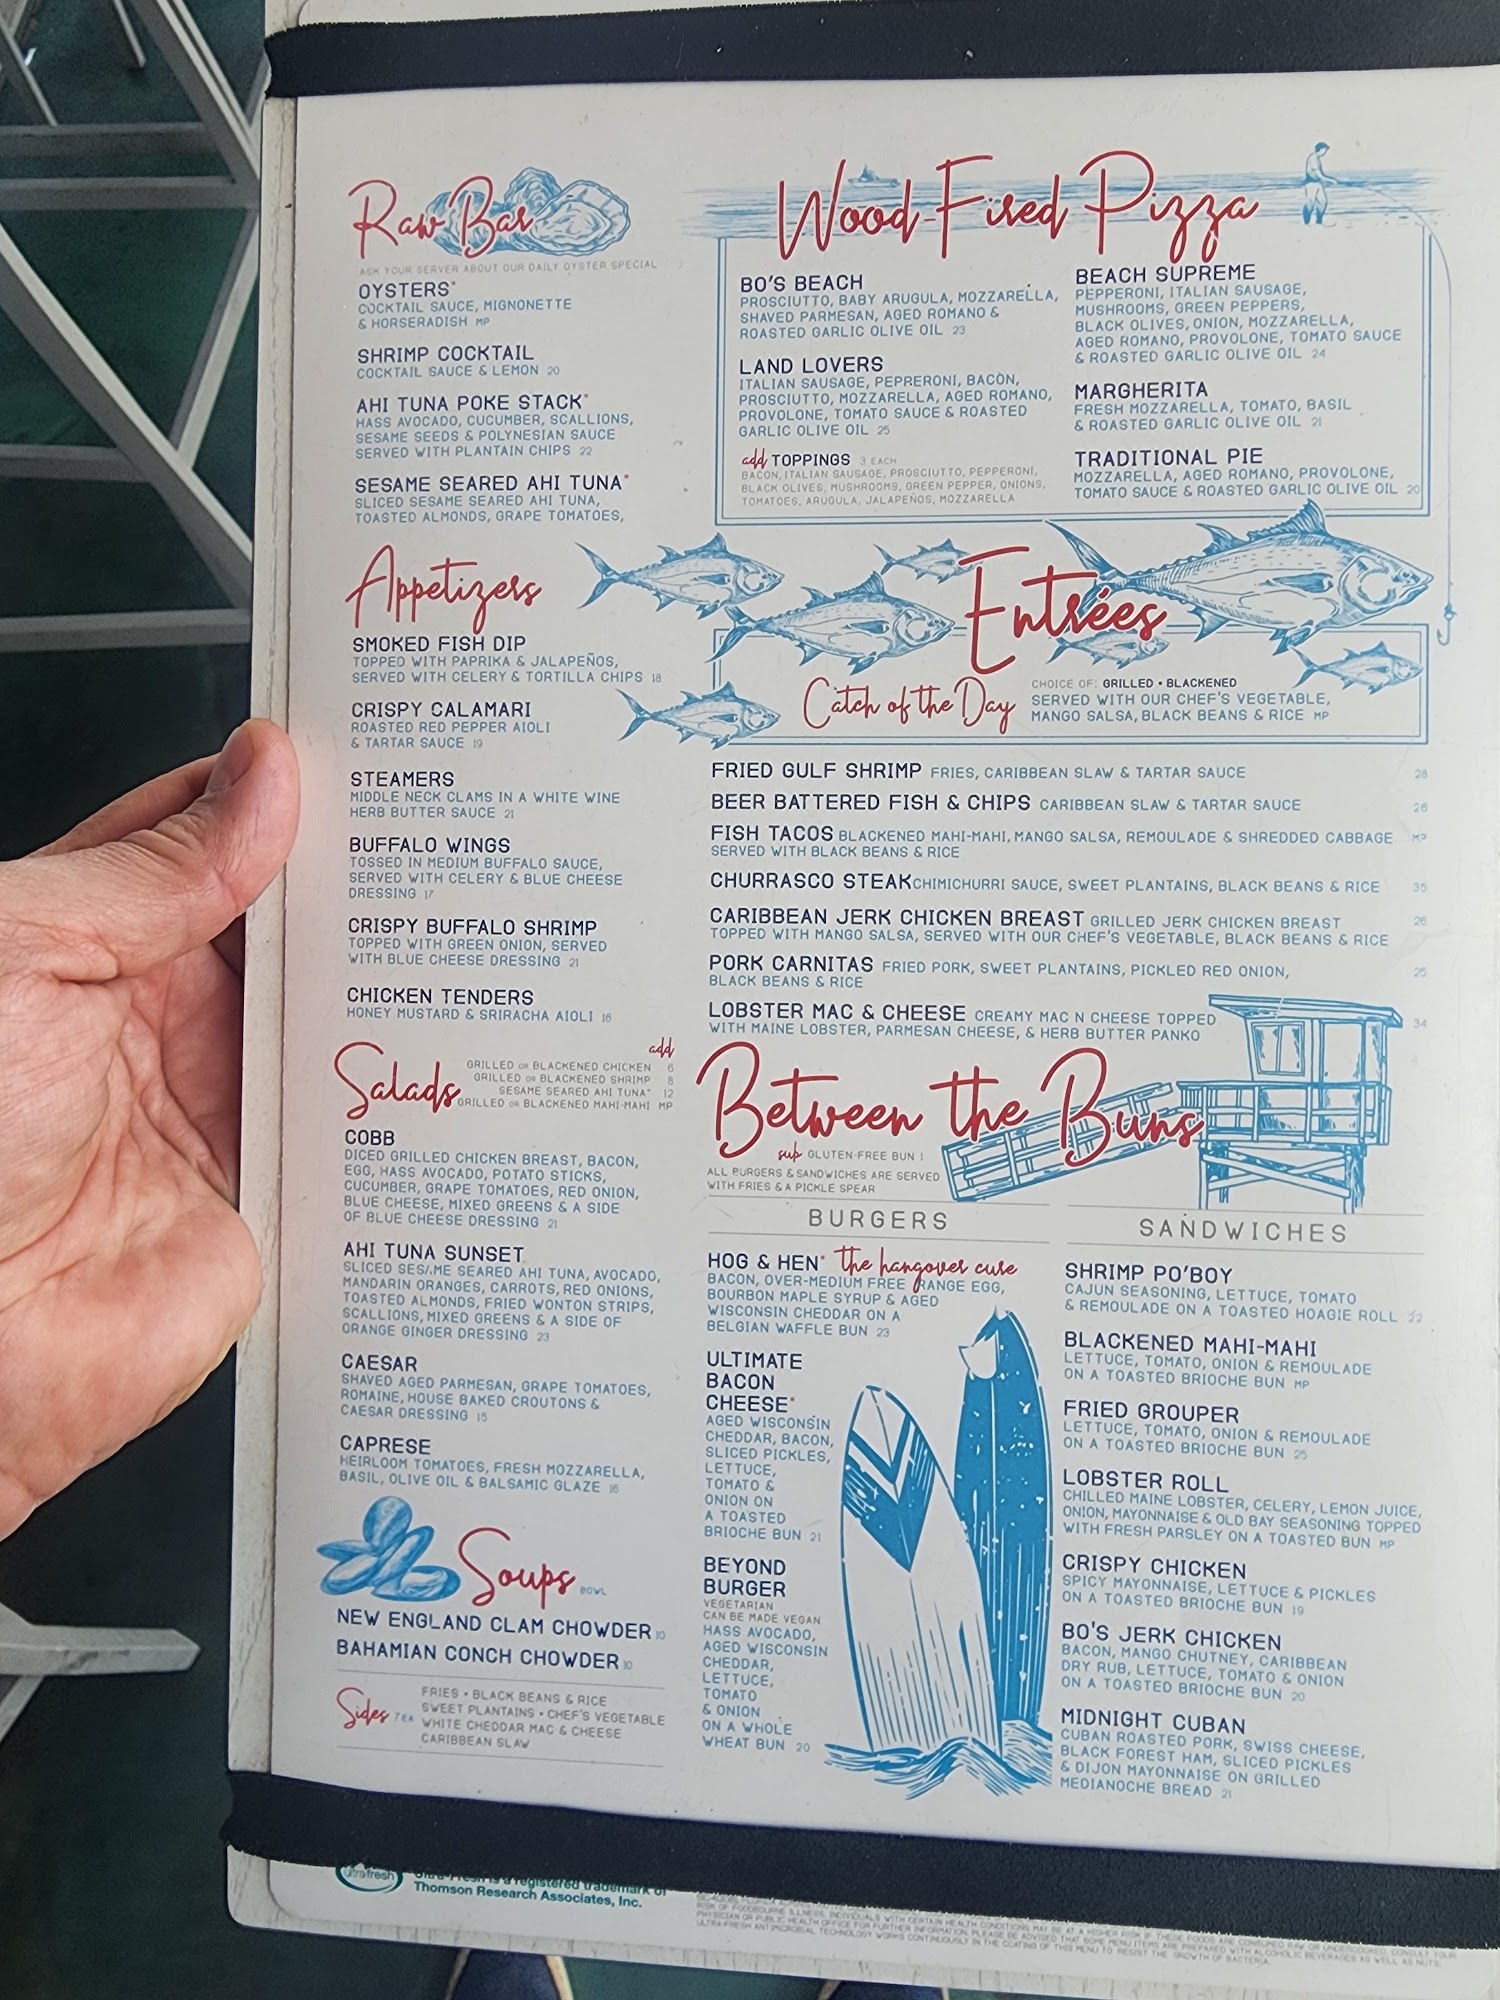 Raw Bar
ASK YOUR SERVER ABOUT OUR DAILY OYSTER SPECIAL
OYSTERS*
COCKTAIL SAUCE, MIGNONETTE
& HORSERADISH MP
SHRIMP COCKTAIL
COCKTAIL SAUCE & LEMON 20
AHI TUNA POKE STACK*
HASS AVOCADO, CUCUMBER, SCALLIONS,
SESAME SEEDS & POLYNESIAN SAUCE
SERVED WITH PLANTAIN CHIPS 22
SESAME SEARED AHI TUNA*
SLICED SESAME SEARED AHI TUNA,
TOASTED ALMONDS, GRAPE TOMATOES,
Appetizers
SMOKED FISH DIP
TOPPED WITH PAPRIKA & JALAPEÑOS,
SERVED WITH CELERY & TORTILLA CHIPS 18
CRISPY CALAMARI
ROASTED RED PEPPER AIOLI
& TARTAR SAUCE 19
STEAMERS
MIDDLE NECK CLAMS IN A WHITE WINE
HERB BUTTER SAUCE 21
BUFFALO WINGS
TOSSED IN MEDIUM BUFFALO SAUCE,
SERVED WITH CELERY & BLUE CHEESE
DRESSING 17
CRISPY BUFFALO SHRIMP
TOPPED WITH GREEN ONION, SERVED
WITH BLUE CHEESE DRESSING 21
CHICKEN TENDERS
HONEY MUSTARD & SRIRACHA AIOLI 16
Salads
add
GRILLED OR BLACKENED CHICKEN 6
GRILLED OR BLACKENED SHRIMP 8
SESAME SEARED AHI TUNA* 12
GRILLED OR BLACKENED MAHI-MAHI MP
COBB
DICED GRILLED CHICKEN BREAST, BACON,
EGG, HASS AVOCADO, POTATO STICKS,
CUCUMBER, GRAPE TOMATOES, RED ONION,
BLUE CHEESE, MIXED GREENS & A SIDE
OF BLUE CHEESE DRESSING 21
AHI TUNA SUNSET
SLICED SESAME SEARED AHI TUNA, AVOCADO,
MANDARIN ORANGES, CARROTS, RED ONIONS,
TOASTED ALMONDS, FRIED WONTON STRIPS,
SCALLIONS, MIXED GREENS & A SIDE OF
ORANGE GINGER DRESSING 23
CAESAR
SHAVED AGED PARMESAN, GRAPE TOMATOES,
ROMAINE, HOUSE BAKED CROUTONS &
CAESAR DRESSING 15
CAPRESE
HEIRLOOM TOMATOES, FRESH MOZZARELLA,
BASIL, OLIVE OIL & BALSAMIC GLAZE 16
Soups BOWL
NEW ENGLAND CLAM CHOWDER 10
BAHAMIAN CONCH CHOWDER 10
Sides 7 EA
FRIES • BLACK BEANS & RICE
SWEET PLANTAINS • CHEF'S VEGETABLE
WHITE CHEDDAR MAC & CHEESE
CARIBBEAN SLAW
Wood-Fired Pizza
BO'S BEACH
PROSCIUTTO, BABY ARUGULA, MOZZARELLA,
SHAVED PARMESAN, AGED ROMANO &
ROASTED GARLIC OLIVE OIL 23
LAND LOVERS
ITALIAN SAUSAGE, PEPPERONI, BACON,
PROSCIUTTO, MOZZARELLA, AGED ROMANO,
PROVOLONE, TOMATO SAUCE & ROASTED
GARLIC OLIVE OIL 25
add TOPPINGS 3 EACH
BACON, ITALIAN SAUSAGE, PROSCIUTTO, PEPPERONI,
BLACK OLIVES, MUSHROOMS, GREEN PEPPER, ONIONS,
TOMATOES, ARUGULA, JALAPEÑOS, MOZZARELLA
BEACH SUPREME
PEPPERONI, ITALIAN SAUSAGE,
MUSHROOMS, GREEN PEPPERS,
BLACK OLIVES, ONION, MOZZARELLA,
AGED ROMANO, PROVOLONE, TOMATO SAUCE
& ROASTED GARLIC OLIVE OIL 24
MARGHERITA
FRESH MOZZARELLA, TOMATO, BASIL
& ROASTED GARLIC OLIVE OIL 21
TRADITIONAL PIE
MOZZARELLA, AGED ROMANO, PROVOLONE,
TOMATO SAUCE & ROASTED GARLIC OLIVE OIL 20
Entrées
Catch of the Day
CHOICE OF: GRILLED • BLACKENED
SERVED WITH OUR CHEF'S VEGETABLE,
MANGO SALSA, BLACK BEANS & RICE MP
FRIED GULF SHRIMP FRIES, CARIBBEAN SLAW & TARTAR SAUCE 28
BEER BATTERED FISH & CHIPS CARIBBEAN SLAW & TARTAR SAUCE 26
FISH TACOS BLACKENED MAHI-MAHI, MANGO SALSA, REMOULADE & SHREDDED CABBAGE MP
SERVED WITH BLACK BEANS & RICE
CHURRASCO STEAK CHIMICHURRI SAUCE, SWEET PLANTAINS, BLACK BEANS & RICE 35
CARIBBEAN JERK CHICKEN BREAST GRILLED JERK CHICKEN BREAST 26
TOPPED WITH MANGO SALSA, SERVED WITH OUR CHEF'S VEGETABLE, BLACK BEANS & RICE
PORK CARNITAS FRIED PORK, SWEET PLANTAINS, PICKLED RED ONION, 25
BLACK BEANS & RICE
LOBSTER MAC & CHEESE CREAMY MAC N CHEESE TOPPED 34
WITH MAINE LOBSTER, PARMESAN CHEESE, & HERB BUTTER PANKO
Between the Buns
sub GLUTEN-FREE BUN 1
ALL BURGERS & SANDWICHES ARE SERVED
WITH FRIES & A PICKLE SPEAR
BURGERS
HOG & HEN* the hangover cure
BACON, OVER-MEDIUM FREE RANGE EGG,
BOURBON MAPLE SYRUP & AGED
WISCONSIN CHEDDAR ON A
BELGIAN WAFFLE BUN 23
ULTIMATE
BACON
CHEESE*
AGED WISCONSIN
CHEDDAR, BACON,
SLICED PICKLES,
LETTUCE,
TOMATO &
ONION ON
A TOASTED
BRIOCHE BUN 21
BEYOND
BURGER
VEGETARIAN
CAN BE MADE VEGAN
HASS AVOCADO,
AGED WISCONSIN
CHEDDAR,
LETTUCE,
TOMATO
& ONION
ON A WHOLE
WHEAT BUN 20
SANDWICHES
SHRIMP PO'BOY
CAJUN SEASONING, LETTUCE, TOMATO
& REMOULADE ON A TOASTED HOAGIE ROLL 22
BLACKENED MAHI-MAHI
LETTUCE, TOMATO, ONION & REMOULADE
ON A TOASTED BRIOCHE BUN MP
FRIED GROUPER
LETTUCE, TOMATO, ONION & REMOULADE
ON A TOASTED BRIOCHE BUN 25
LOBSTER ROLL
CHILLED MAINE LOBSTER, CELERY, LEMON JUICE,
ONION, MAYONNAISE & OLD BAY SEASONING TOPPED
WITH FRESH PARSLEY ON A TOASTED BUN MP
CRISPY CHICKEN
SPICY MAYONNAISE, LETTUCE & PICKLES
ON A TOASTED BRIOCHE BUN 19
BO'S JERK CHICKEN
BACON, MANGO CHUTNEY, CARIBBEAN
DRY RUB, LETTUCE, TOMATO & ONION
ON A TOASTED BRIOCHE BUN 20
MIDNIGHT CUBAN
CUBAN ROASTED PORK, SWISS CHEESE,
BLACK FOREST HAM, SLICED PICKLES
& DIJON MAYONNAISE ON GRILLED
MEDIANOCHE BREAD 21
ultrafresh
Ultra-Fresh is a registered trademark of
Thomson Research Associates, Inc.
RISK OF FOODBOURNE ILLNESS. INDIVIDUALS WITH CERTAIN HEALTH CONDITIONS MAY BE AT A HIGHER RISK IF THESE FOODS ARE CONSUMED RAW OR UNDERCOOKED. CONSULT YOUR
PHYSICIAN OR PUBLIC HEALTH OFFICE FOR FURTHER INFORMATION. PLEASE BE ADVISED THAT SOME MENU ITEMS ARE PREPARED WITH ALCOHOLIC BEVERAGES AS WELL AS NUTS.
ULTRA-FRESH ANTIMICROBIAL TECHNOLOGY WORKS CONTINUOUSLY IN THE COATING OF THIS MENU TO RESIST THE GROWTH OF BACTERIA.